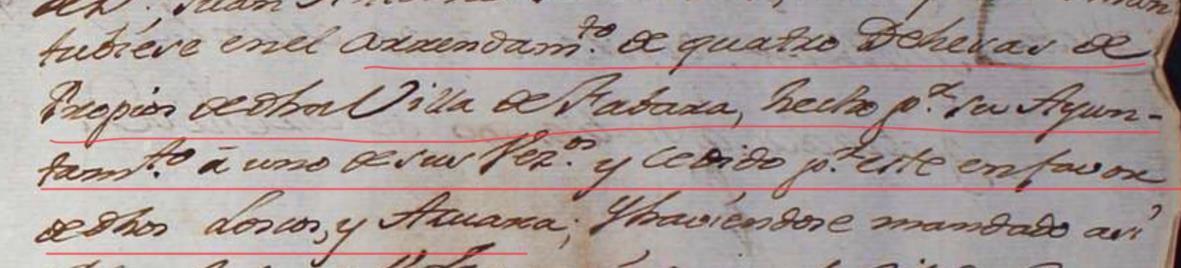 tubiese en el Arrendam.to de quatro Dehesas de
Propios de dha Villa de Fabara, hecho p.r su Ayun-
tam.to á uno de sus Vez.os y cedido p.r este en favor
de dhos Loscos, y Aruara; y haviendose mandado asi